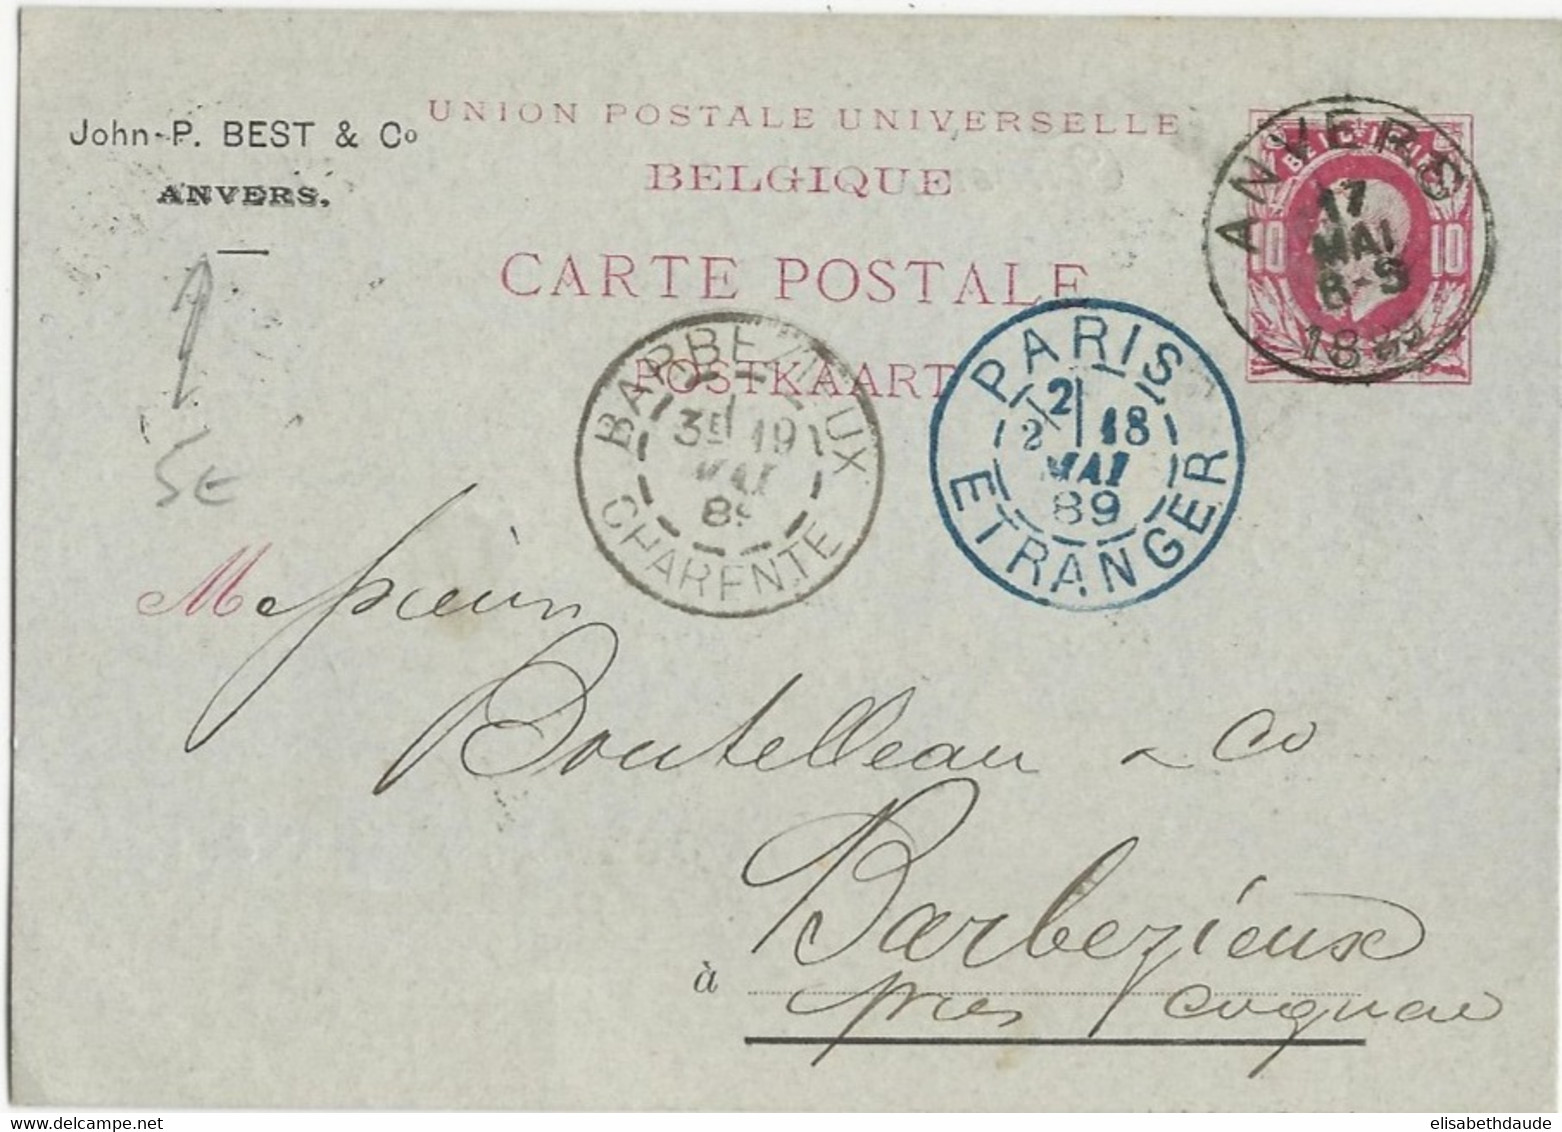 UNION POSTALE UNIVERSELLE
John-P. BEST & Co
BELGIQUE
ANVERS.
CARTE POSTALE
POSTKAART
ANVERS
17
MAI
8-S
1889
10 10
BARBEZIEUX
3E 19
MAI
89
CHARENTE
PARIS
2 18
MAI
89
ETRANGER
SE
Messieurs
Boutelleau & Co
Barbezieux
à
près Cognac
elisabethdaude